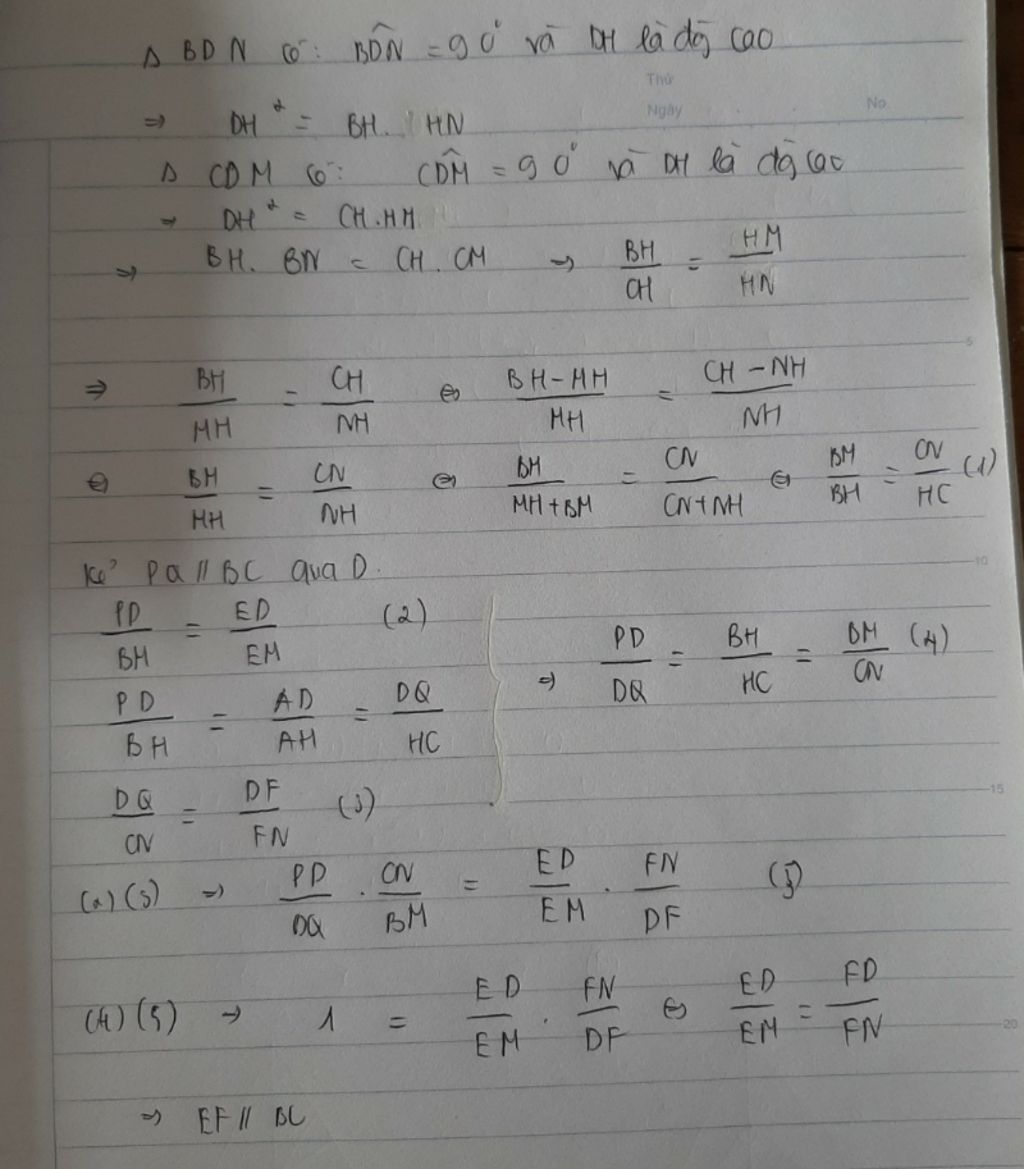 Δ BDN có: BD̂N = 90° và DH là đg cao
Thứ
Ngày No.
⇒ DH² = BH. HN
Δ CDM có: CD̂M = 90° và DH là đg cao
⇒ DH² = CH.HM
⇒ BH. BN = CH. CM ⇒ BH/CH = HM/HN
5
⇒ BH/MH = CH/NH ⇔ BH-MH/MH = CH-NH/NH
⇔ BM/MH = CN/NH ⇔ BM/MH+BM = CN/CN+NH ⇔ BM/BH = CN/HC (1)
10
Kẻ PQ // BC qua D.
PD/BM = ED/EM (2)
PD/BH = AD/AH = DQ/HC ⇒ PD/DQ = BH/HC = BM/CN (4)
15
DQ/CN = DF/FN (3)
(2)(3) ⇒ PD/DQ . CN/BM = ED/EM . FN/DF (5)
(4)(5) ⇒ 1 = ED/EM . FN/DF ⇔ ED/EM = FD/FN
20
⇒ EF // BC